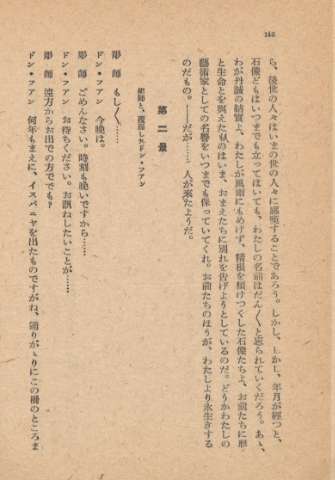 ら、後世の人々はいまの世の人々に感謝することであろう。しかし、しかし、年月が經つと、
石像どもはいつまでも立ってはいても、わたしの名前はだん〱と忘られていくだろう。あゝ、
わが丹誠の結實よ、わたしが風雨にもめげず、精根を傾けつくした石像たちよ、お前たちに形
と生命とを與えた私のは いま、おまえたちに別れを告げようとしているのだ。どうかわたしの
藝術家としての名譽をいつまでも保っていてくれ。お前たちのほうが、わたしより永生きする
のだもの。——だが……人が來たようだ。
第二景
彫師と、覆面したドン・フアン
彫師 もし〱……
ドン・フアン 今晩は。
彫師 ごめんなさい。時刻も晩いですから……
ドン・フアン お待ちください。お訊ねしたいことが……
彫師 遠方からお出での方ですか?
ドン・フアン 何年もまえに、イスパニヤを出たものですがね、通りがゝりにこの柵のところま